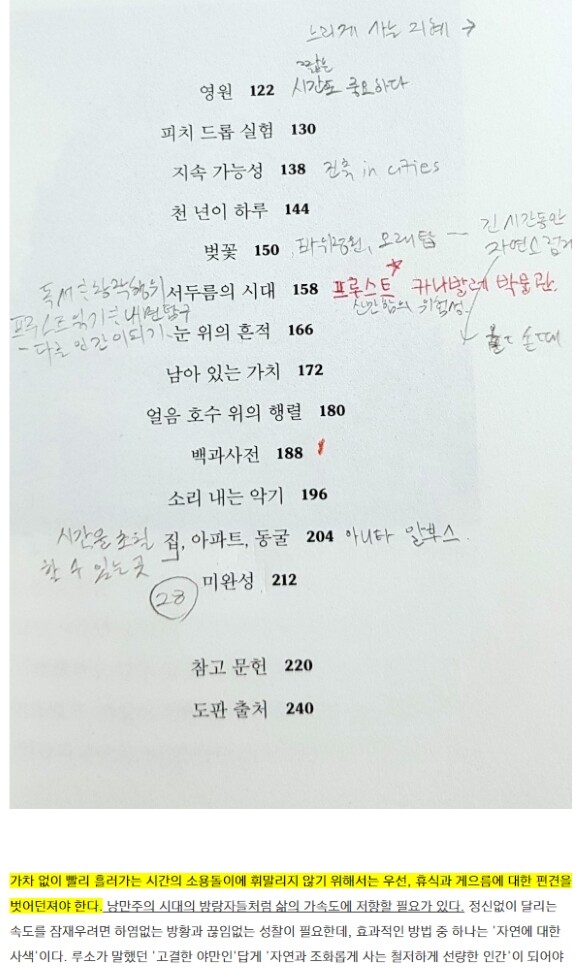 느리게 사는 지혜 →
짧은
영원 122 시간도 중요하다
피치 드롭 실험 130
지속 가능성 138 건축 in cities
천 년이 하루 144
벚꽃 150 바위정원, 모래탑 — 긴 시간동안
독서는 창작행위 서두름의 시대 158 프루스트 카나발레 박물관
프루스트 읽기는 내면탐구 산만함의 위험성
- 다른 인간이 되기 눈 위의 흔적 166
남아 있는 가치 172
얼음 호수 위의 행렬 180
백과사전 188
소리 내는 악기 196
시간을 초월 집, 아파트, 동굴 204 아니타 알부스.
할 수 있는 곳
미완성 212
28
참고 문헌 220
도판 출처 240
가차 없이 빨리 흘러가는 시간의 소용돌이에 휘말리지 않기 위해서는 우선, 휴식과 게으름에 대한 편견을
벗어던져야 한다. 낭만주의 시대의 방랑자들처럼 삶의 가속도에 저항할 필요가 있다. 정신없이 달리는
속도를 잠재우려면 하염없는 방황과 끊임없는 성찰이 필요한데, 효과적인 방법 중 하나는 '자연에 대한
사색'이다. 루소가 말했던 '고결한 야만인'답게 '자연과 조화롭게 사는 철저하게 선량한 인간'이 되어야